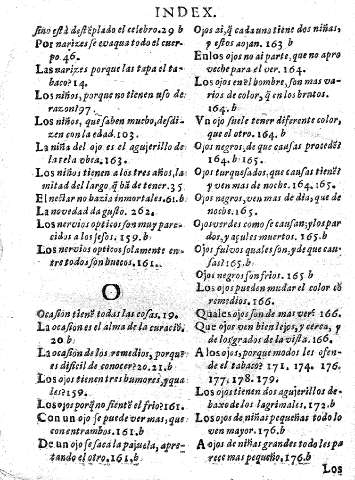 INDEX.
sino está destẽplado el celebro. 29 b
Por narizes se evaqua todo el cuer-
po. 46.
Las narizes porque las tapa el ta-
baco? 14.
Los niños, porque no tienen uso de
razon? 97.
Los niños, que saben mucho, desdi-
zen con la edad. 103.
La niña del ojo es el agujerillo de
la tela uvea. 163.
Los niños tienen a los tres años, la
mitad del largo, q̃ hã de tener. 35
El nectar no hazia inmortales. 61. b
La novedad da gusto. 262.
Los nervios opticos son muy pare-
cidos a los sesos. 159. b
Los nervios opticos solamente en-
tre todos son huecos. 161.
O
Ocasion tienẽ todas las cosas. 19.
La ocasion es el alma de la curaciõ.
20 b
La ocasion de los remedios, porque
es dificil de conocer? 20. 21. b
Los ojos tienen tres humores, y qua
les? 159.
Los ojos porq̃ no sientẽ el frio? 161.
Con un ojo se puede ver mas, que
con entrambos. 161. b
De un ojo se saca la pajuela, apre-
tando el otro. 161. b
Ojos ai, q̃ cada uno tiene dos niñas,
y estos aojan. 163 b
En los ojos no ai parte, que no apro
veche para el ver. 164.
Los ojos en el hombre, son mas va-
rios de color, q̃ en los brutos.
164. b
Un ojo suele tener diferente color,
que el otro. 164. b
Ojos negros, de que causas procedẽ?
164. b. 165.
Ojos turquesados, que causas tienẽ?
y ven mas de noche. 164. 165.
Ojos negros, ven mas de dia, que de
noche. 165.
Ojos verdes como se causan; y los par-
dos, y açules muertos. 165. b
Ojos fulvos quales son, y de que cau-
sas? 165. b
Ojos negros son frios. 165. b
Los ojos pueden mudar el color cõ
remedios. 166.
Quales ojos son de mas ver? 166.
Que ojos ven bien lejos, y cerca, y
de los grados de la vista. 166.
A los ojos, porque modos les ofen-
de el tabaco? 171. 174. 176.
177. 178. 179.
Los ojos tienen dos agujerillos de-
baxo de los lagrimales. 172. b
Los ojos de niñas pequeñas todo lo
ven mayor. 176. b
A ojos de niñas grandes todo les pa
rece mas pequeño. 176. b
Los